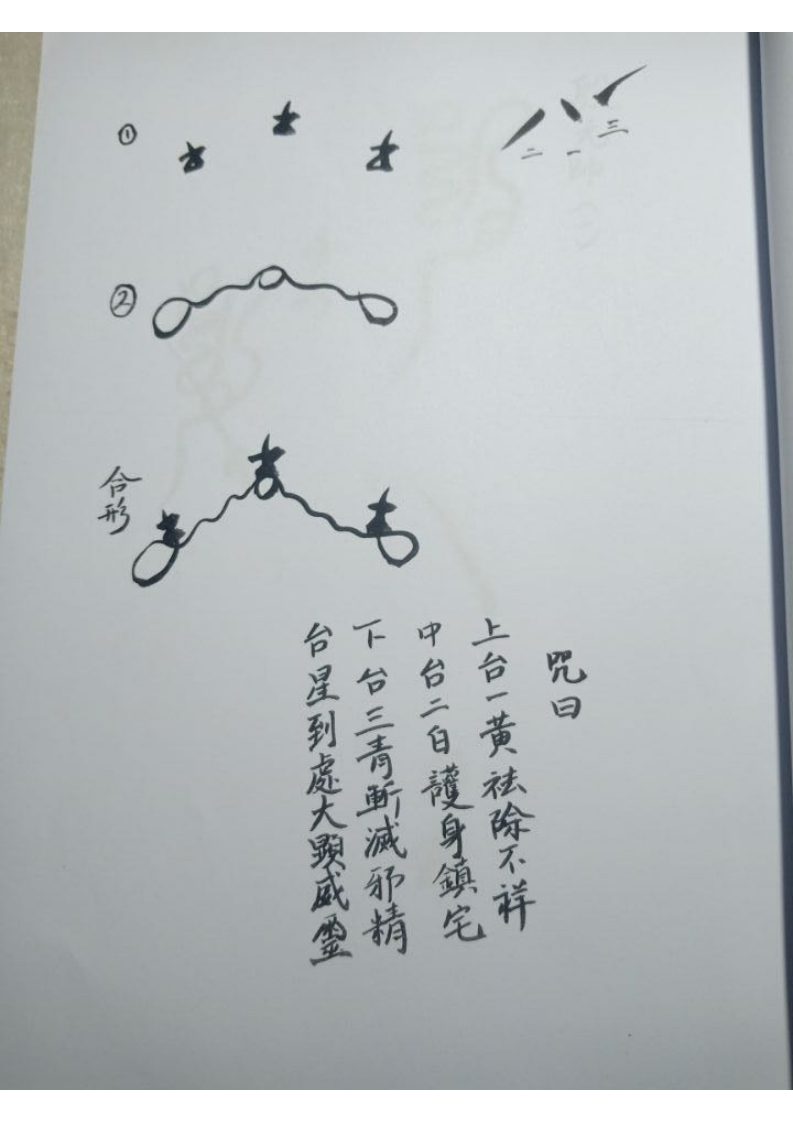 ①
二 一 三
②
合形
咒曰
上台一黃祛除不祥
中台二白護身鎮宅
下台三青斬滅邪精
台星到處大顯威靈